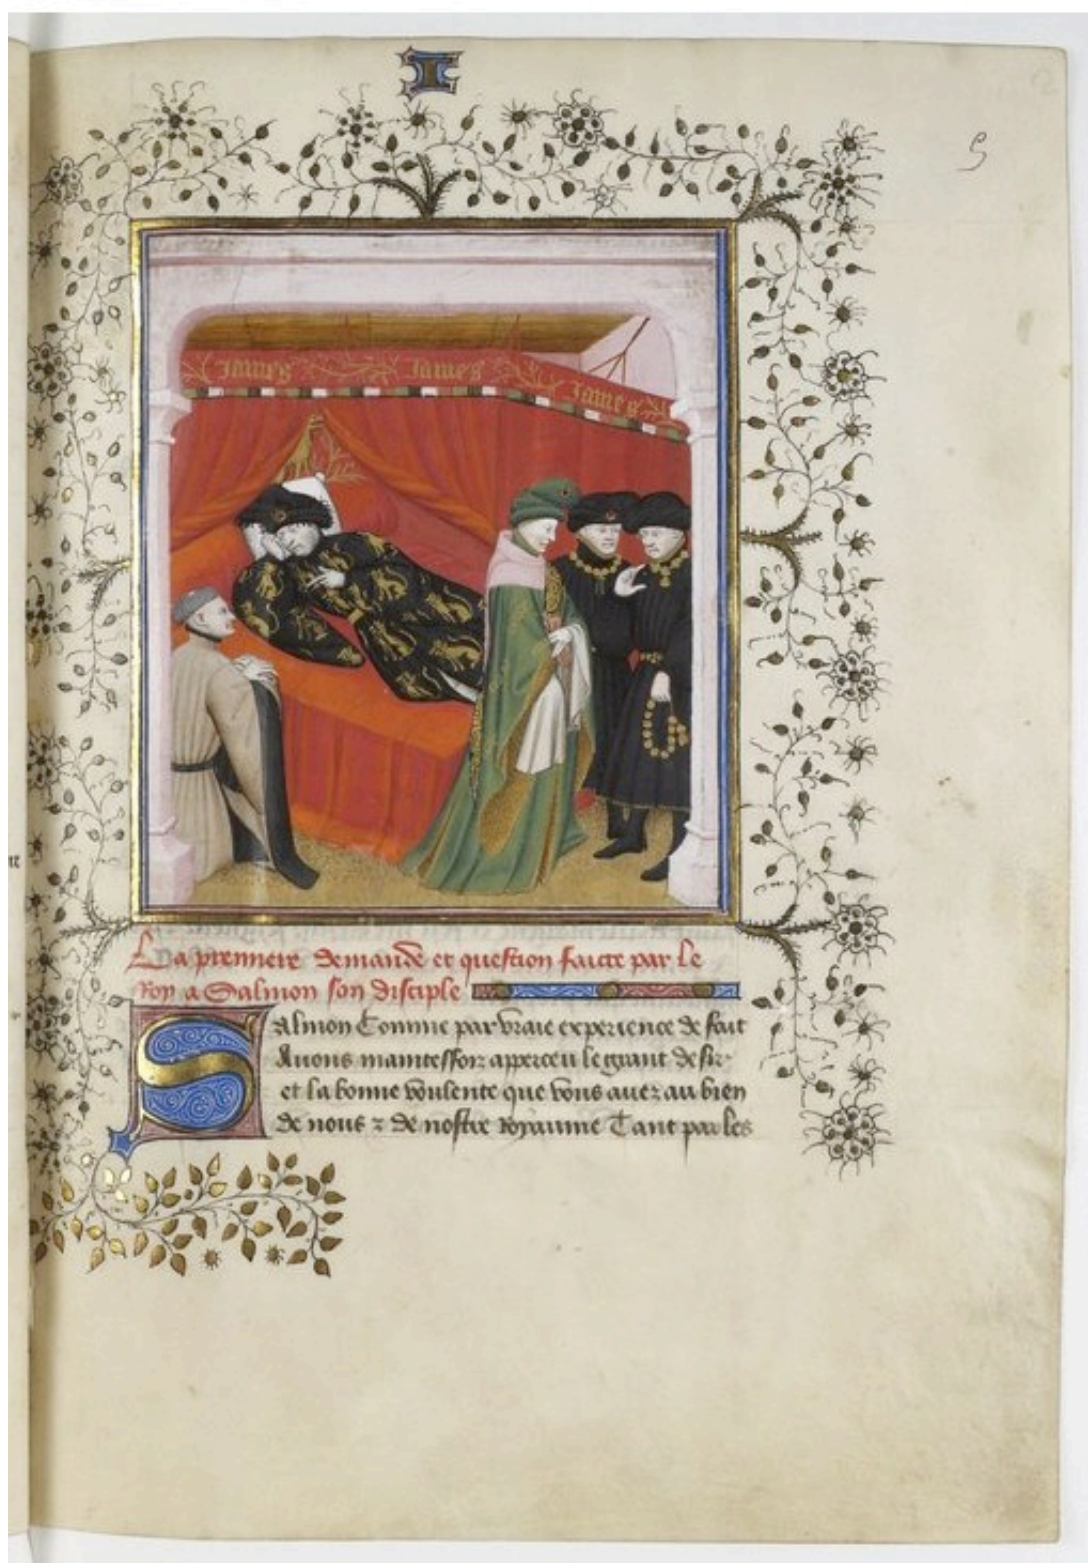 I
5
James James James
La premiere demande et question faicte par le
Roy a Salmon son disciple
Salmon Comme par vraie experience de fait
Auons maintesfoiz aperceu le grant desir
et la bonne voulente que vous auez au bien
de nous ⁊ de nostre Royaume Tant par les